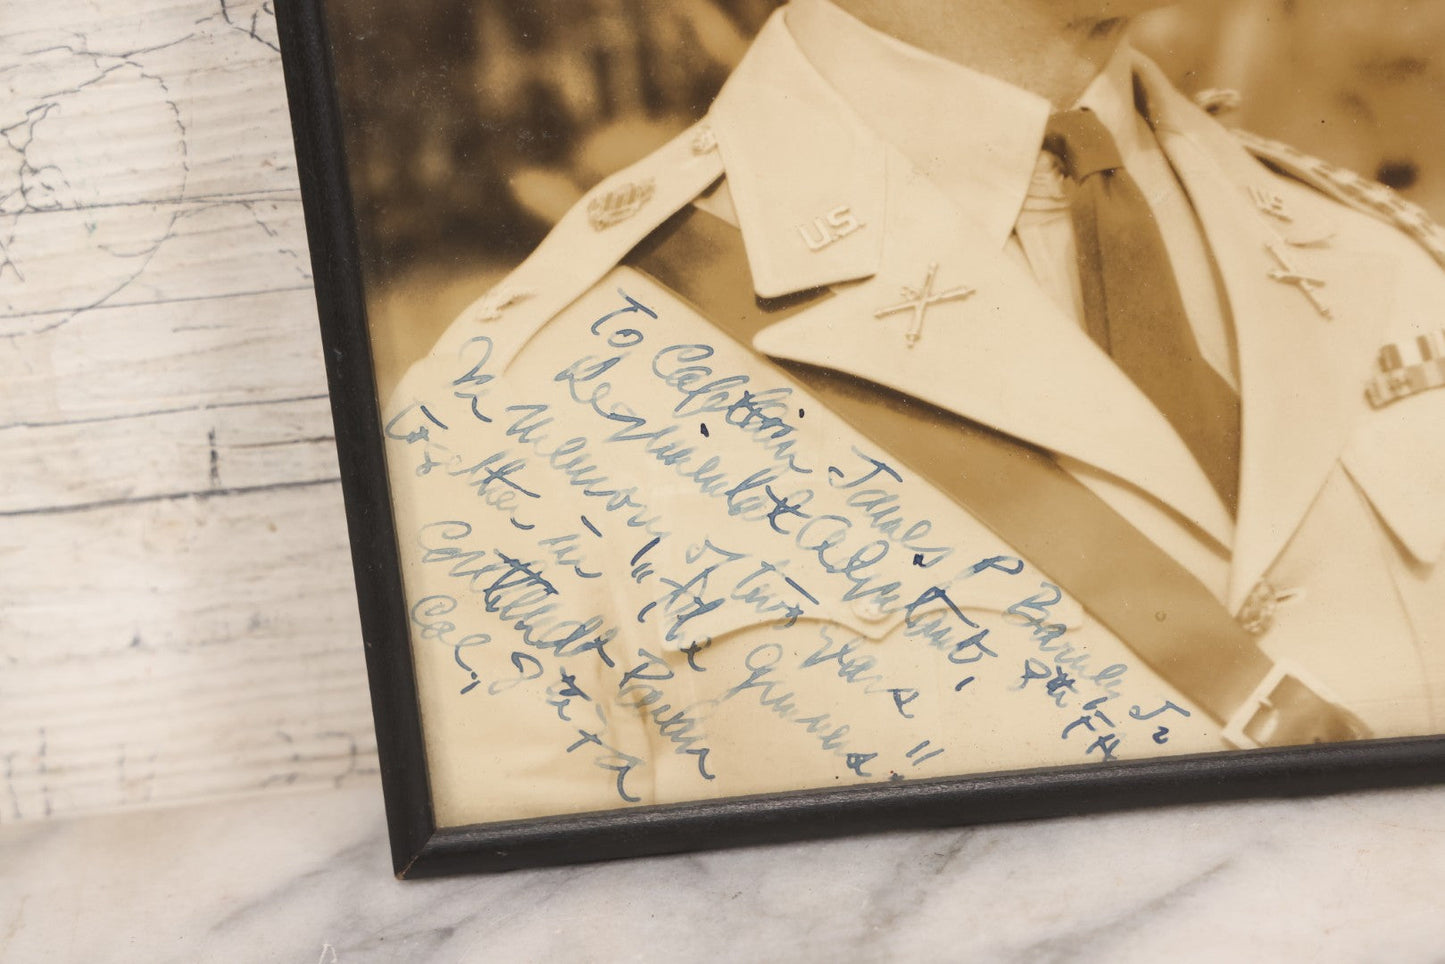 U.S.
To Captain James P Barney Jr
Regimental Adjutant, 8th FA
In Memory of two years
together in "the Grimes"
Cortlandt Parker
Col, 8th FA